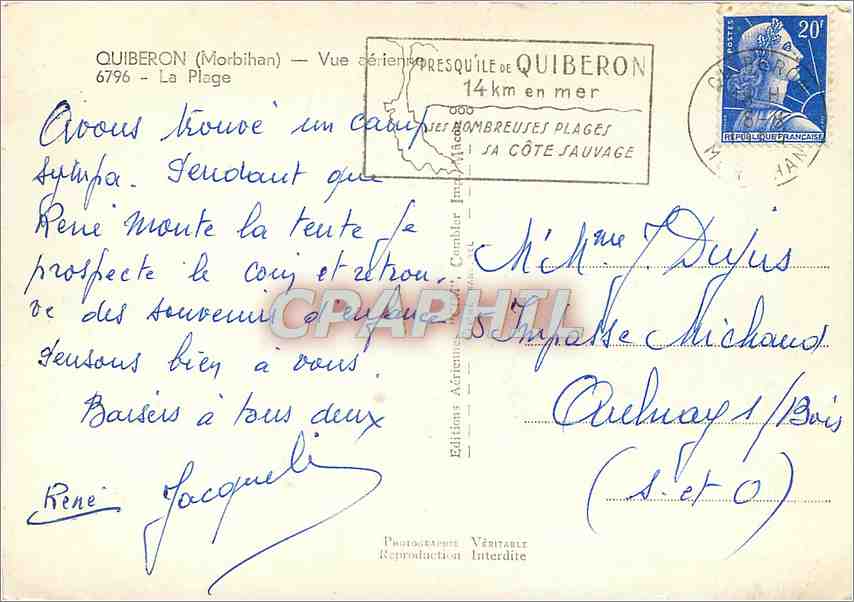 QUIBERON (Morbihan) — Vue aérienne
6796 - La Plage
PRESQU'ILE DE QUIBERON
14 km en mer
SES NOMBREUSES PLAGES
SA CÔTE SAUVAGE
POSTES
20F
REPUBLIQUE FRANÇAISE
QUIBERON
Avons trouvé un camp
sympa. Pendant que
René monte la tente je
prospecte le coin et retrou-
ve des souvenirs d'enfance
Pensons bien à vous.
Baisers à tous deux
René Jacqueli
Editions Aériennes Combier Imp. Mâcon
CPAPHIL
M. Mme J. Dujus
5 Impasse Michaud
Aulnay s/Bois
(S. et O)
PHOTOGRAPHIE VÉRITABLE
Reproduction Interdite